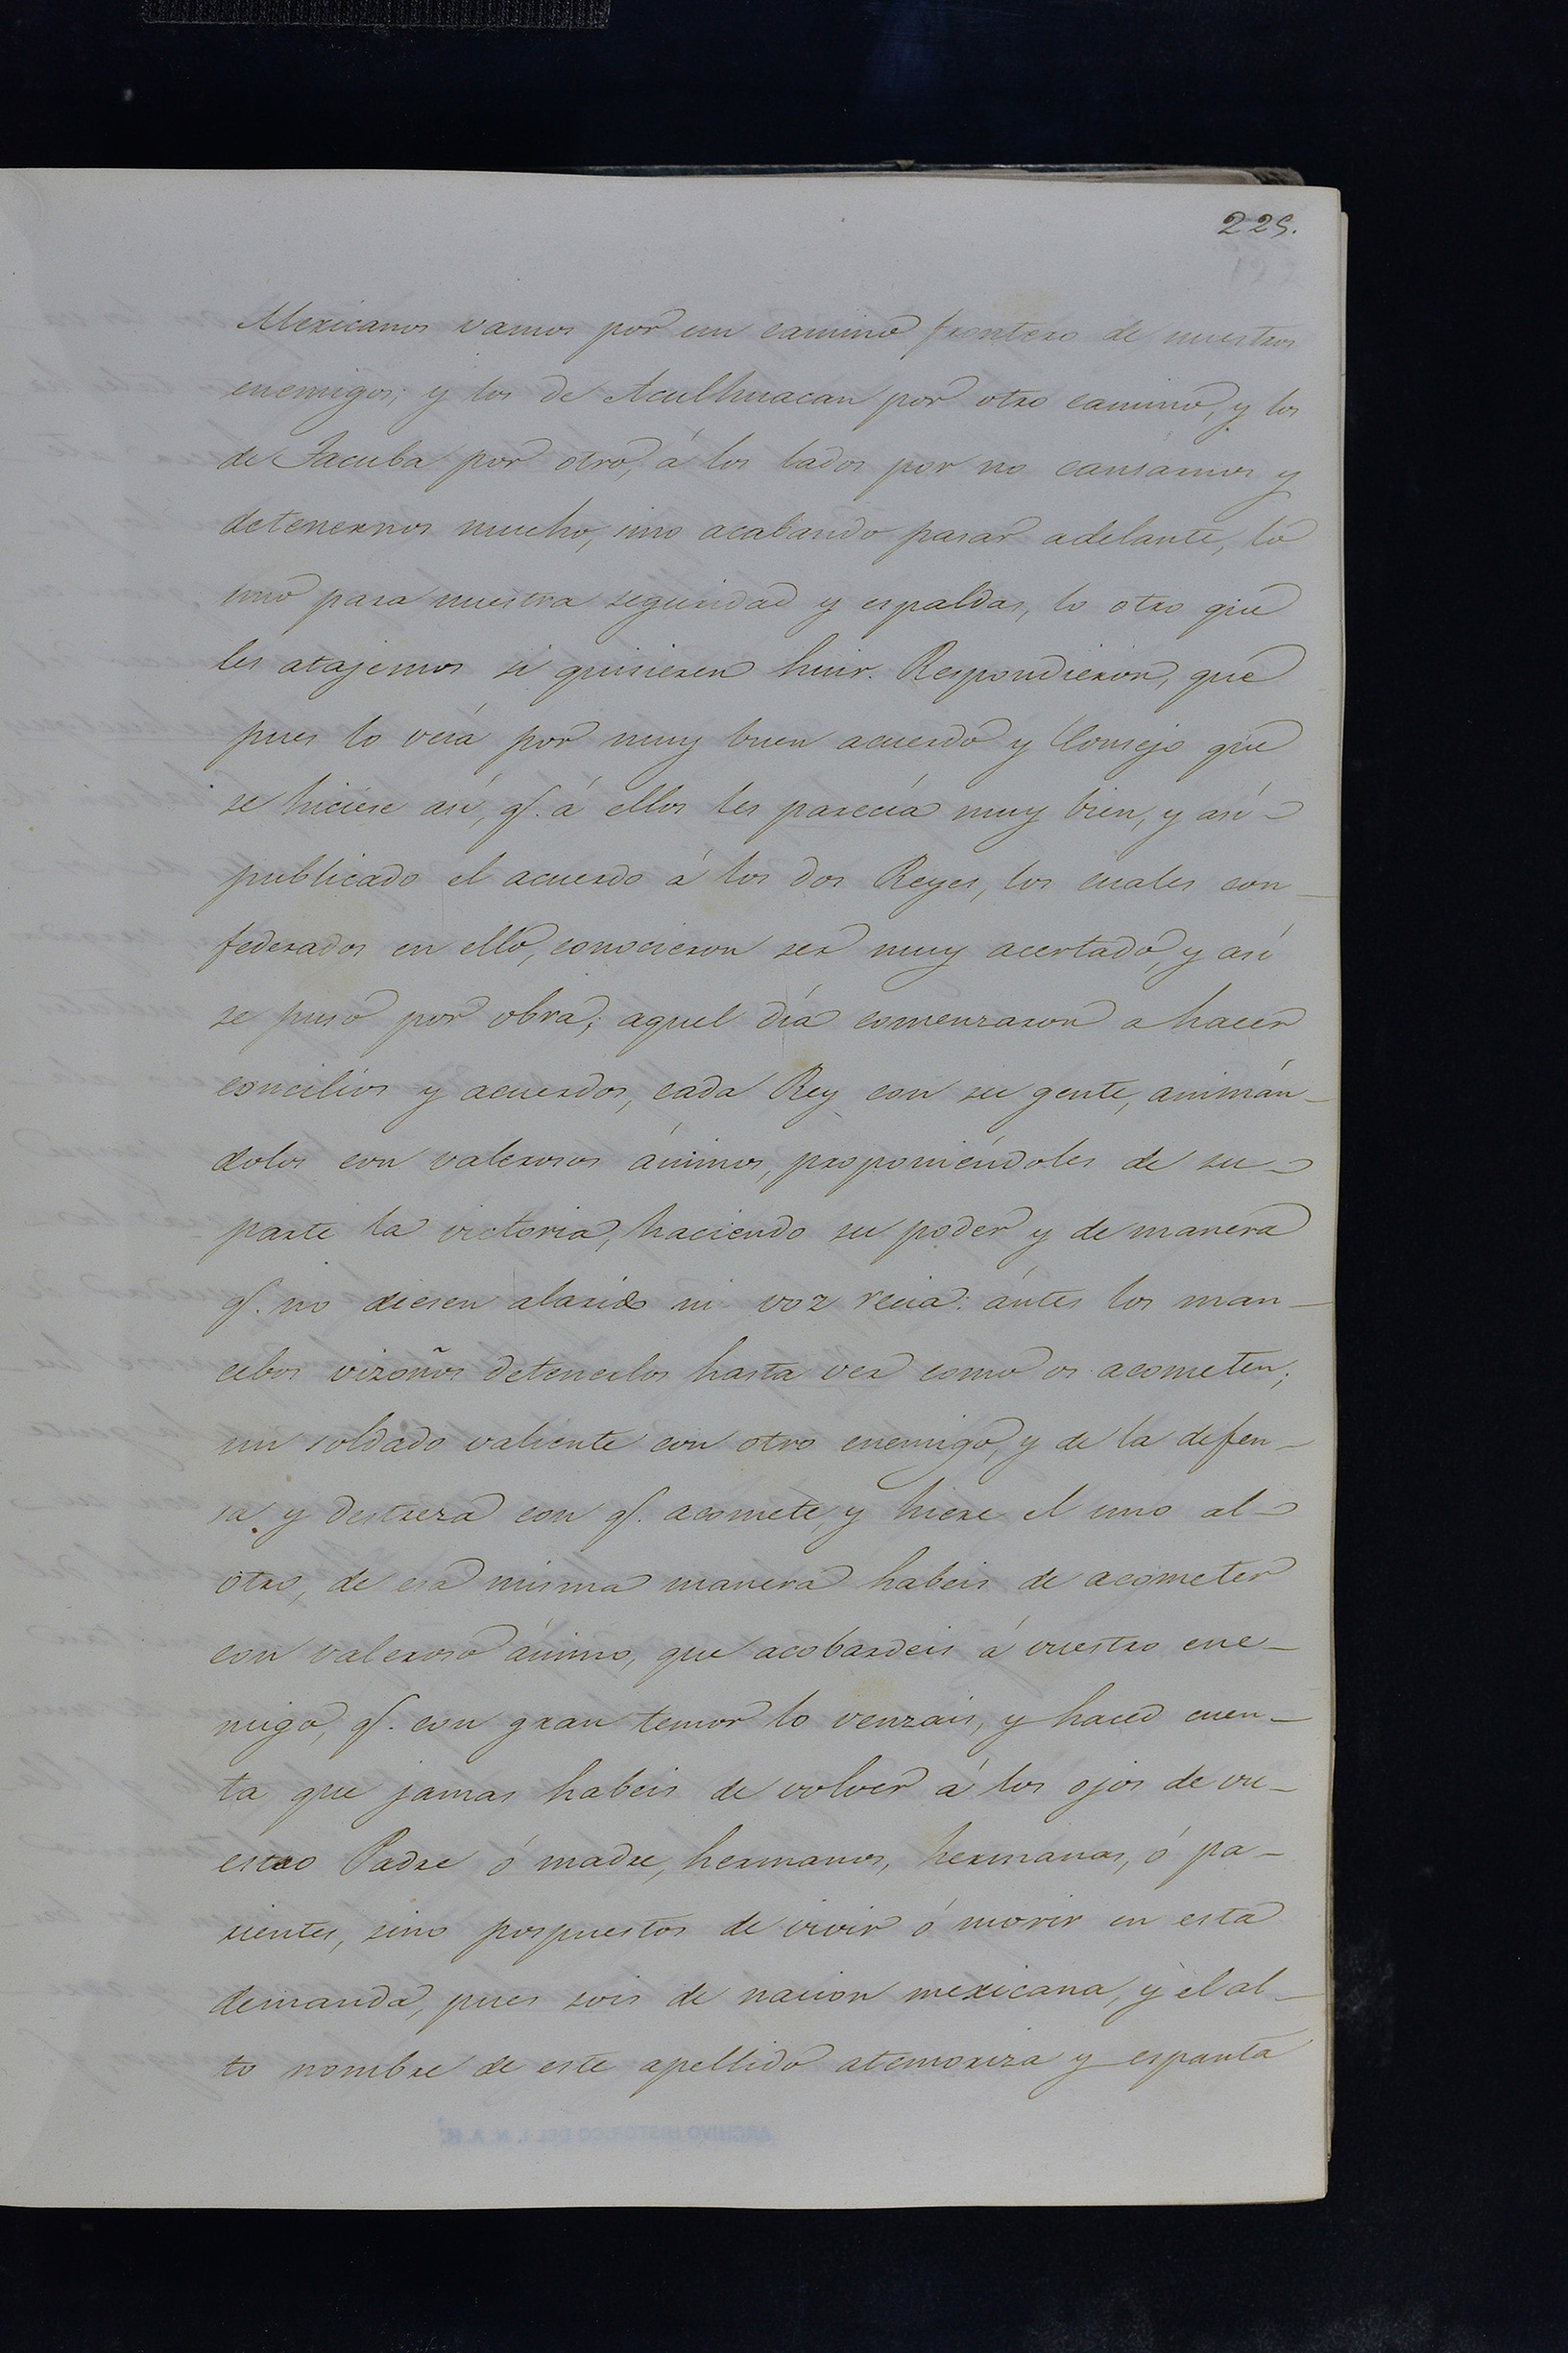 225.
Mexicanos vamos por un camino frontero de nuestros
enemigos; y los de Aculhuacan por otro camino, y los
de Tacuba por otro, á los lados por no cansarnos y
detenernos mucho, sino acabando pasar adelante, lo
uno para nuestra seguridad y espaldas, lo otro que
les atajemos si quisieren huir. Respondieron, que
pues lo veía por muy buen acuerdo y Consejo que
se hiciese así, q.e á ellos les parecía muy bien, y así
publicado el acuerdo á los dos Reyes, los cuales con_
federados en ello, conocieron ser muy acertado, y así
se puso por obra; aquel día comenzaron a hacer
concilios y acuerdos, cada Rey con su gente, animán_
dolos con valerosos ánimos, proponiéndoles de su
parte la victoria, haciendo su poder y de manera
q.e no diesen alarido ni voz recia: ántes los man_
cebos vizoños detenerlos hasta ver como os acometen;
un soldado valiente con otro enemigo, y de la defen_
sa y destreza con q.e acomete, y hiere el uno al
otro, de esa misma manera habeis de acometer
con valeroso ánimo, que acobardeis á vuestro ene_
migo, q.e con gran temor lo venzais, y haced cuen_
ta que jamas habeis de volver á los ojos de vu_
estro Padre ó madre, hermanos, hermanas, ó pa_
rientes, sino pospuestos de vivir ó morir en esta
demanda, pues sois de nacion mexicana, y el al_
to nombre de este apellido atemoriza y espanta